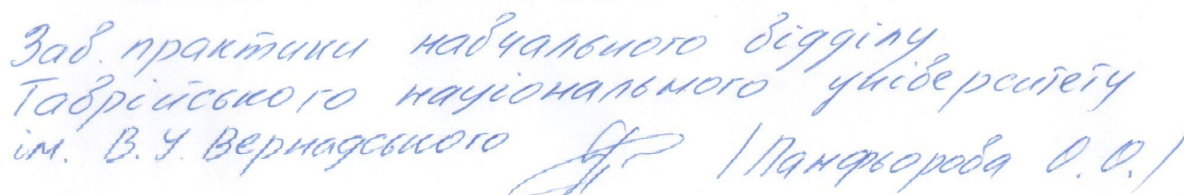 Зав. практики навчального відділу
Таврійського національного університету
ім. В.У. Вернадського /Панфьорова О.О./